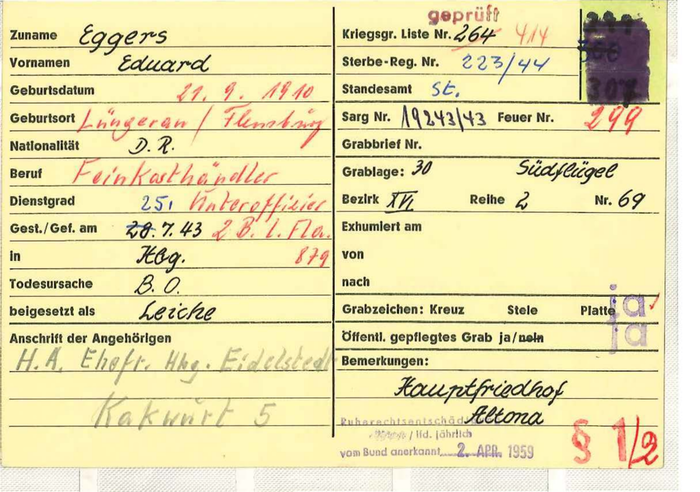 geprüft
Zuname Eggers
Vornamen Eduard
Geburtsdatum 21. 9. 1910
Geburtsort / Flensburg
Nationalität D. R.
Beruf Feinkosthändler
Dienstgrad 25. Unteroffizier
Gest./Gef. am 28. 7. 43 2 B. l. Fla.
in Hbg. 879
Todesursache B. O.
beigesetzt als Leiche
Anschrift der Angehörigen
H. A. Ehefr. Hbg. Eidelstedt
Kakwurt 5
Kriegsgr. Liste Nr. 264 414
Sterbe-Reg. Nr. 223/44
Standesamt St.
307
Sarg Nr. 19243/43 Feuer Nr. 299
Grabbrief Nr.
Grablage: 30 Südflügel
Bezirk XVI Reihe 2 Nr. 69
Exhumiert am
von
nach
Grabzeichen: Kreuz Stele Platte ja
Öffentl. gepflegtes Grab ja/nein ja
Bemerkungen:
Hauptfriedhof
Altona
Ruherechtsentschäd
/ lfd. jährlich
vom Bund anerkannt 2. APR. 1959
§ 1/2